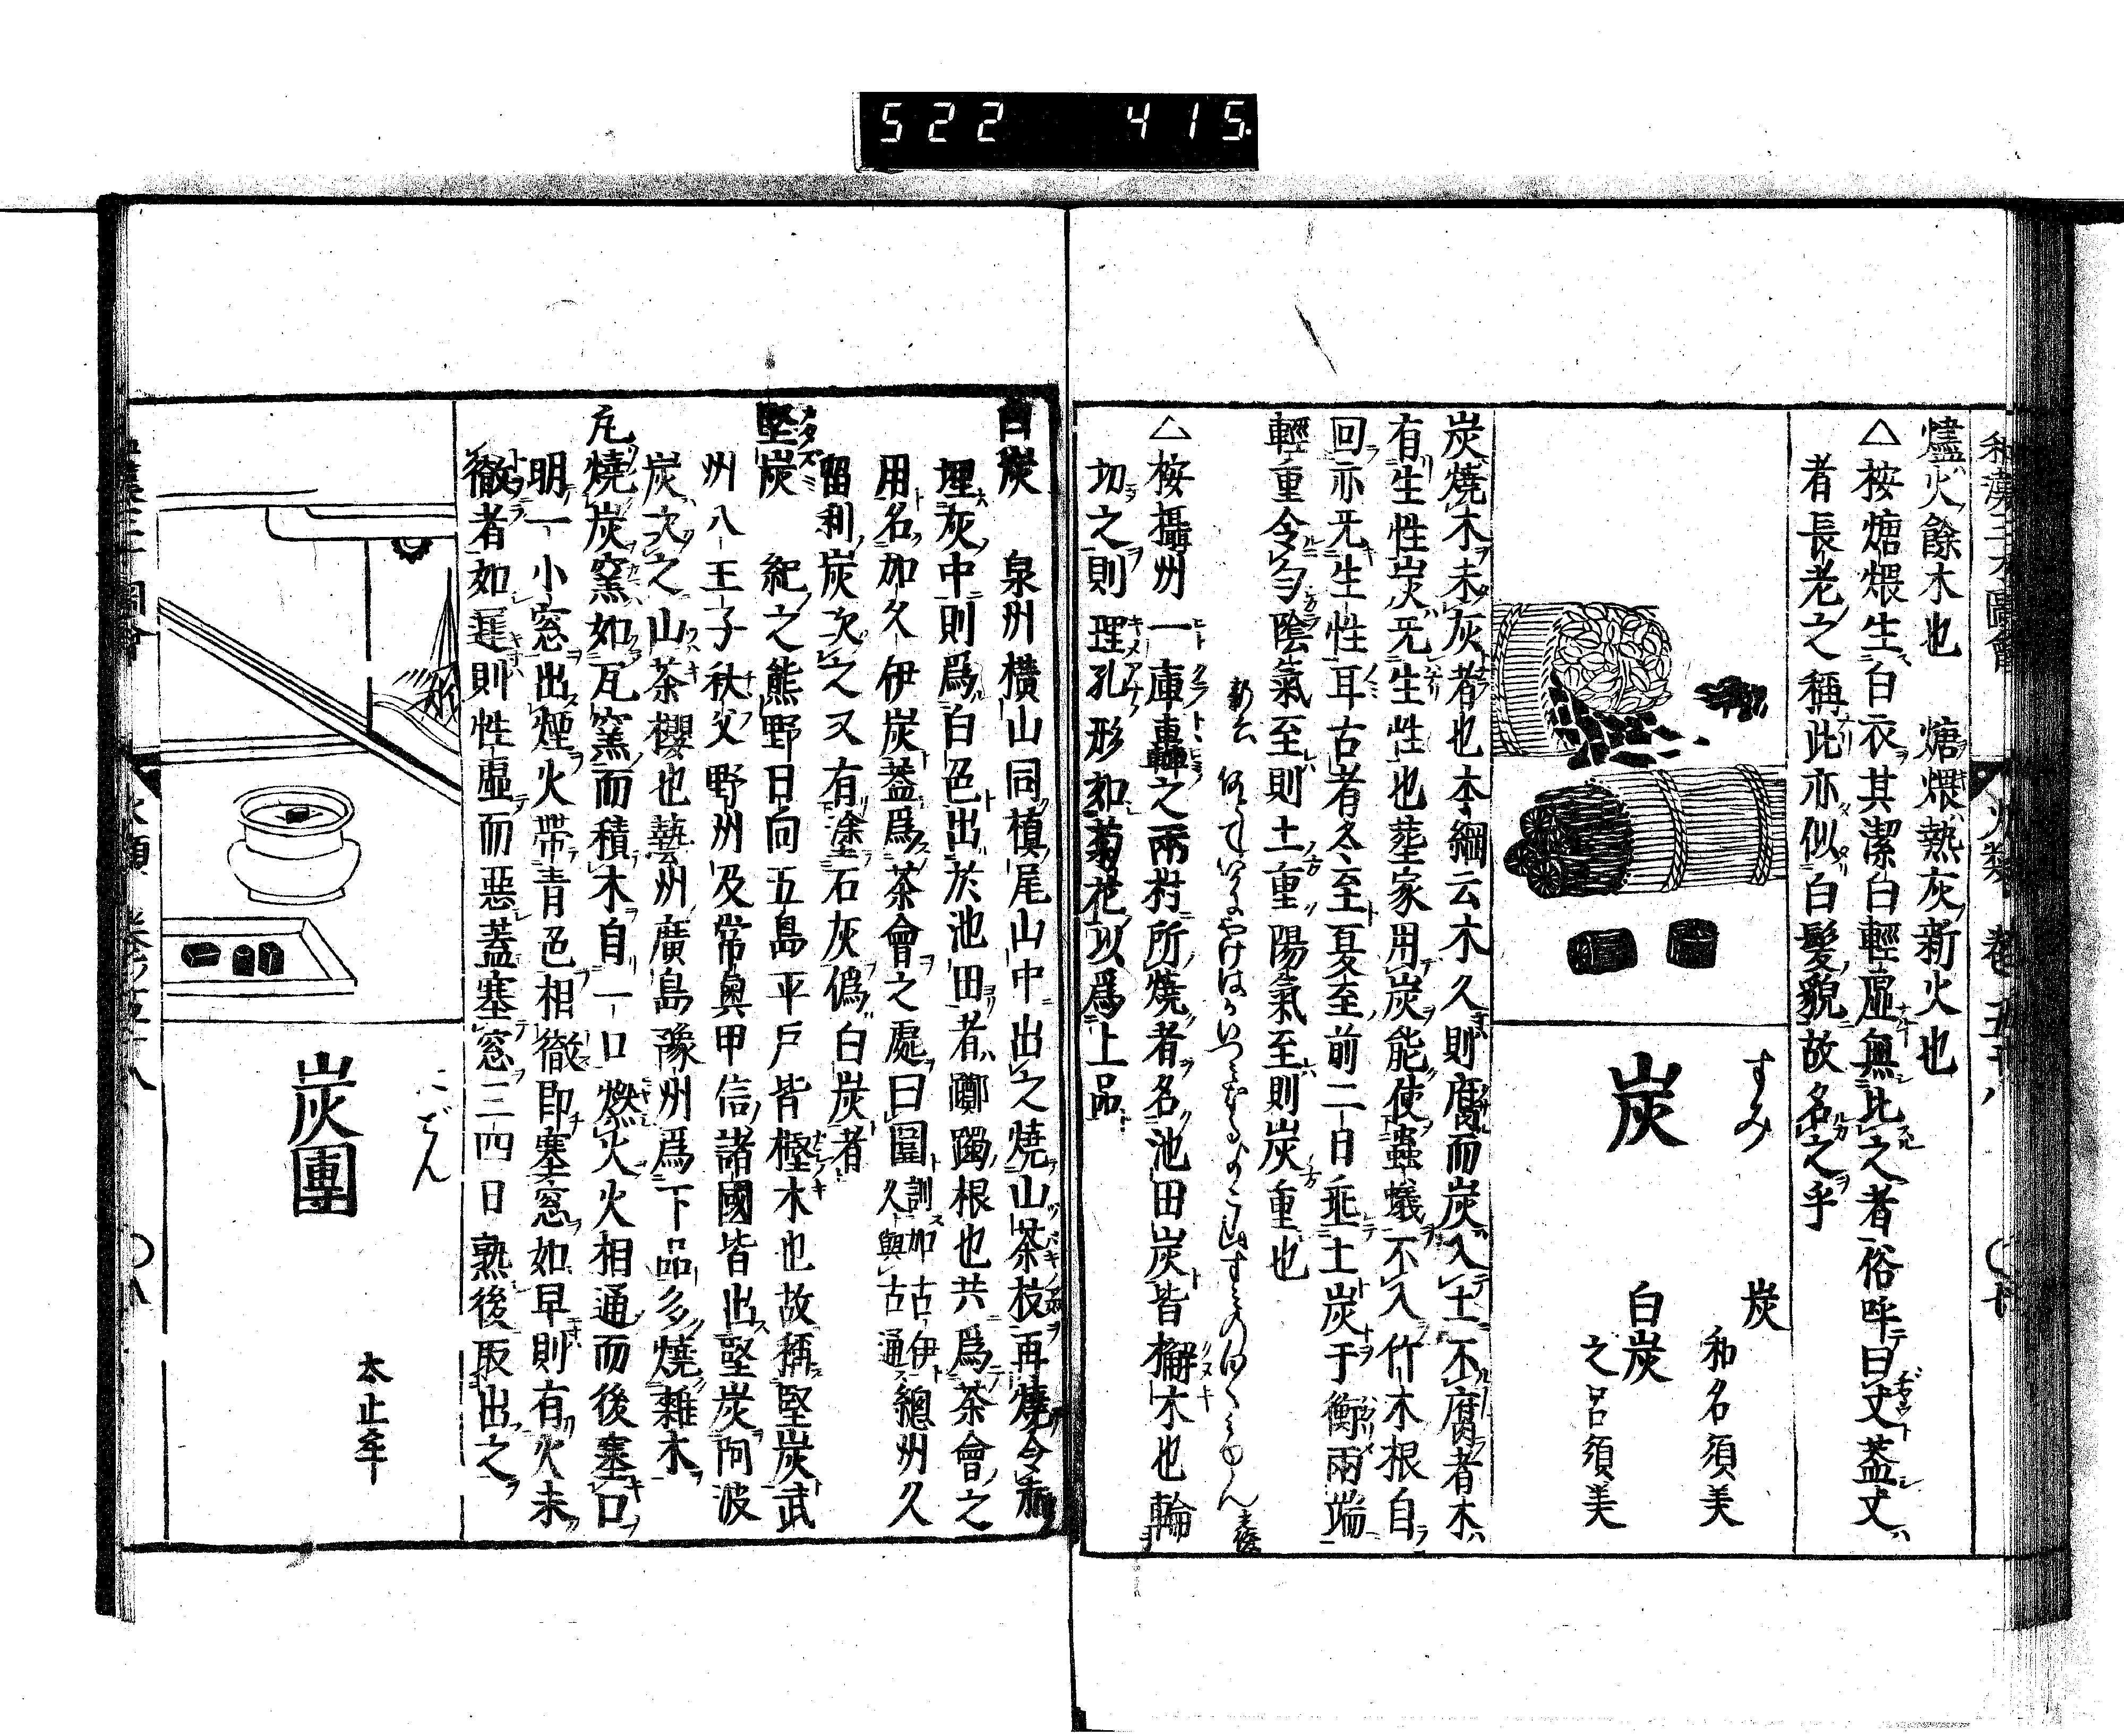 522 415.
和漢三才圖會 火類 卷五十八
燼火餘木也 煻煨熱灰新火也
△按煻煨生白衣其潔白輕虛無比之者俗呼曰丈蓋丈
者長老之稱此亦似白髮貌故名之乎
すみ
炭
炭 和名須美
白炭 之呂須美
炭燒木未灰者也本綱云木久則腐而炭入土不腐者木
有生性炭无生性也塟家用炭能使蟲蟻不入竹木根自
回亦无生性耳古者冬至夏至前二日垂土炭于衡兩端
輕重令勻陰氣至則土重陽氣至則炭重也
△按攝州一庫轟之兩村所燒者名池田炭皆櫪木也輪
切之則理孔形如菊花以爲上品
白炭 泉州橫山同槙尾山中出之燒山茶枝再燒令赤
埋灰中則爲白色出於池田者躑躅根也共爲茶會之
用名加久伊炭蓋爲茶會之處曰圍訓加古伊久與古通總州久
留利炭次之又有塗石灰僞白炭者
堅炭 紀之熊野日向五島平戶皆樫木也故稱堅炭武
州八王子秋父野州及常奧甲信諸國皆出堅炭阿波
炭次之山茶櫻也藝州廣島豫州爲下品多燒雜木
凡燒炭窯如瓦窯而積木自一口燃火火相通而後塞口
明一小窓出煙火帶青色相徹卽塞窓如早則有火未
徹者如遲則性虛而惡蓋塞窓三四日熟後取出之
たどん
炭團
太止牟
火類 卷五十八